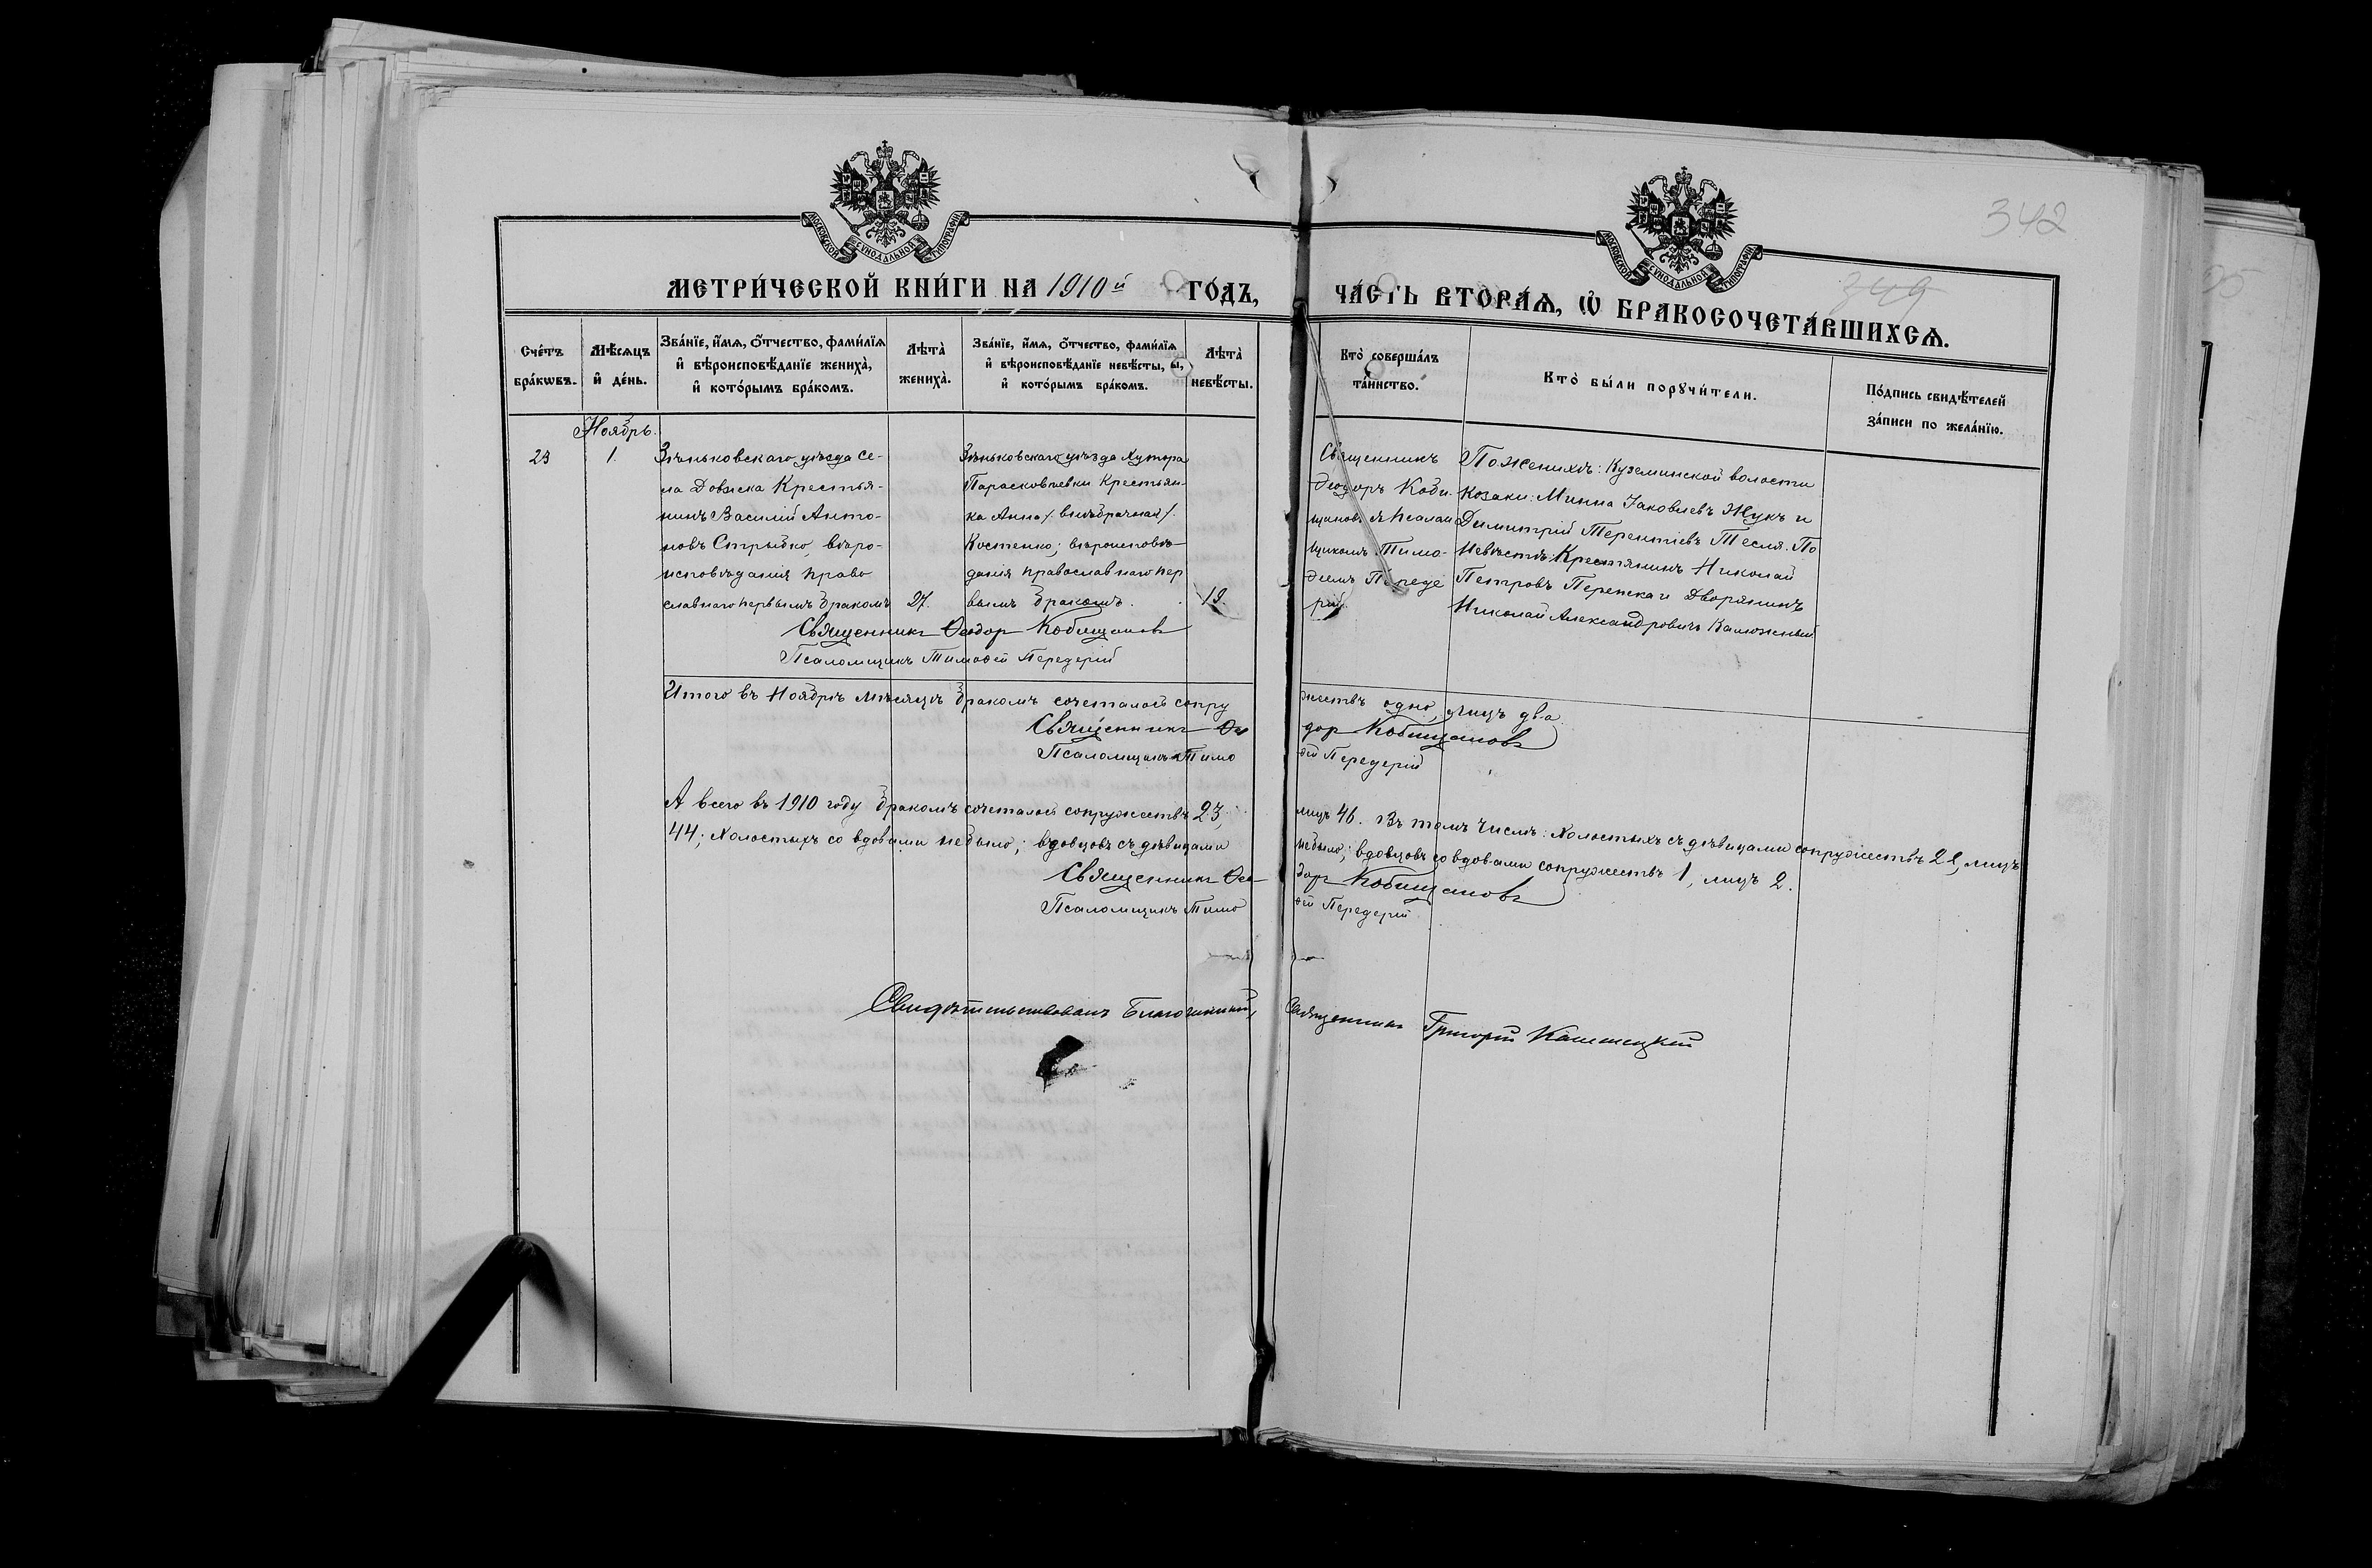 342
349
МОСКОВСКОЙ СѴНОДАЛЬНОЙ ТИПОГРАФІИ
МОСКОВСКОЙ СѴНОДАЛЬНОЙ ТИПОГРАФІИ
МЕТРИ́ЧЕСКОЙ КНИ́ГИ НА 1910й ГО́ДЪ,
ЧА́СТЬ ВТОРА́Ѧ, Ѡ҆ БРАКОСОЧЕТА́ВШИХСѦ.
Сче́тъ бра́кѡвъ.
Мѣ́сяцъ и҆ де́нь.
Зва́нїе, и҆́мѧ, ѻ҆́тчество, фами́лїѧ и҆ вѣроисповѣ́данїе жениха̀, и҆ кото́рымъ бра́комъ.
Лѣта̀ жениха̀.
Зва́нїе, и҆́мѧ, ѻ҆́тчество, фами́лїѧ и҆ вѣроисповѣ́данїе невѣ́сты, и҆ кото́рымъ бра́комъ.
Лѣта̀ невѣ́сты.
Кто̀ соверша́лъ та́инство.
Кто̀ бы́ли порꙋчи́тели.
По́дпись свидѣ́телей за́писи по жела́нїю.
Ноябрь.
23
1.
Зѣньковскаго уѣзда се-
ла Довжка Крестья-
нинъ Василій Анто-
новъ Стрыбко, вѣро-
исповѣданія право
славнаго первымъ бракомъ
27.
Зѣньковскаго уѣзда хутора
Парасковѣевки Крестьян-
ка Анна /внѣбрачная/
Костенко; вѣроисповѣ-
данія православнаго пер
вымъ бракомъ.
19.
Священникъ
Ѳеодоръ Коби-
щановъ съ псалом
щикомъ Тимо-
ѳеемъ Переде
рій.
По женихѣ: Куземинской волости
Козаки: Минна Іаковлевъ Жукъ и
Димитрій Терентіевъ Тесля. По
Невѣстѣ: Крестянинъ Николай
Петровъ Перепека и Дворянинъ
Николай Александровичъ Калюжный
Священникъ Ѳеодор Кобищановъ
Псаломщикъ Тимоѳей Передерій
Итого въ Ноябрѣ мѣсяцѣ бракомъ сочеталось супру
жествъ одно, лицъ два.
Священникъ Ѳео
дор Кобищановъ
Псаломщикъ Тимо
ѳей Передерій
А всего въ 1910 году бракомъ сочеталось супружествъ 23,
лицъ 46. Въ томъ числѣ: Холостыхъ съ дѣвицами супружествъ 22, лицъ
44; Холостыхъ со вдовами небыло; вдовцовъ съ дѣвицами
небыло; вдовцовъ со вдовами супружествъ 1, лицъ 2.
Священникъ Ѳео
дор Кобищановъ
Псаломщикъ Тимо
ѳей Передерій
Свидѣтельствовалъ Благочинный,
Священникъ Григорій